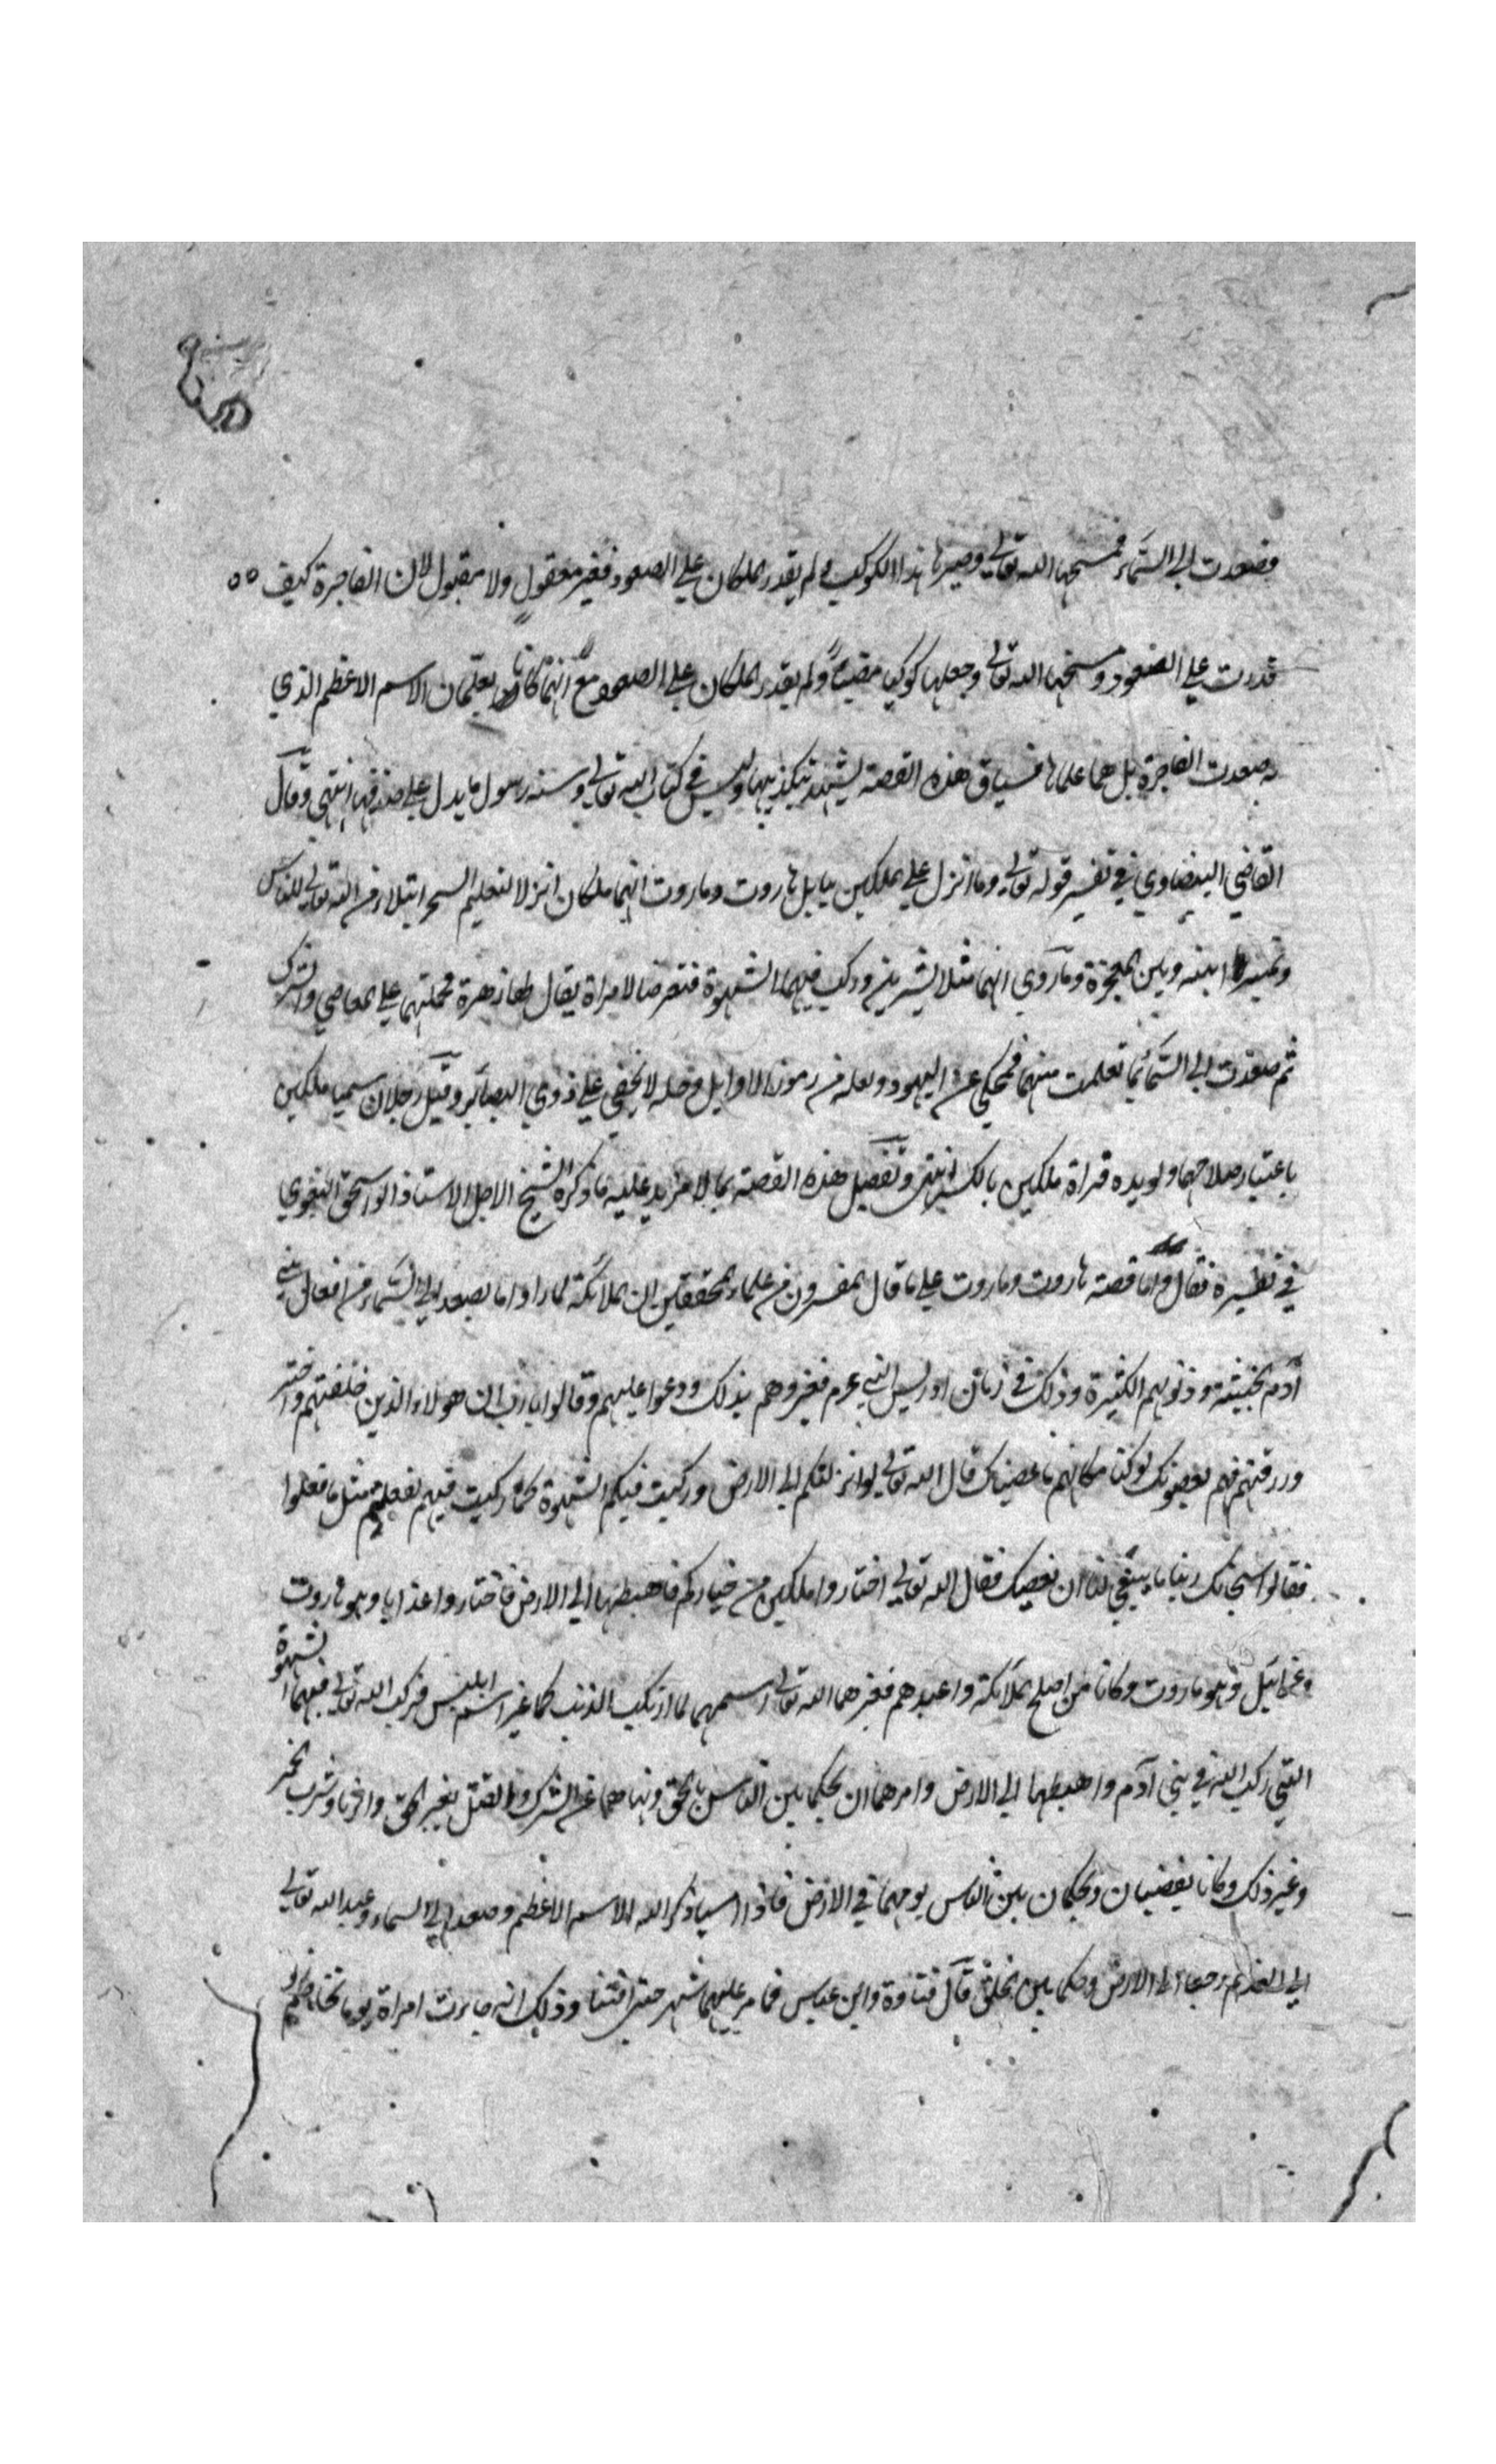 فصعدت الى السماء فمسخها الله تعالى وصيرها هذا الكوكب ولم يقدر الملكان على الصعود فغير معقول ولا مقبول لان الفاجرة كيف
قدرت على الصعود ومسخها الله تعالى وجعلها كوكبا مضيئا ولم يقدر الملكان على الصعود مع انهما كانا يعلمان الاسم الاعظم الذي
به صعدت الفاجرة بل هما علماها فسياق هذه القصة يشهد بتكذيبها وليس في كتاب الله تعالى وسنة رسوله ما يدل على صدقها انتهى وقال
القاضي البيضاوي في تفسير قوله تعالى وما انزل على الملكين ببابل هاروت وماروت انهما ملكان انزلا لتعليم السحر ابتلاء من الله تعالى للناس
وتميزا بينه وبين المعجزة وما روى انهما مثلا بشرين وركب فيهما الشهوة فتعرضا لامراة يقال لها زهرة فحملتهما على المعاصي والشرك
ثم صعدت الى السماء بما تعلمت منهما فمحكي عن اليهود ولعله من رموز الاوايل وحله لا يخفى على ذوي البصائر وقيل رجلان سميا ملكين
باعتبار صلاحهما ويويده قراة ملكين بالكسر انتهى وتفصيل هذه القصة بما لا مزيد عليه ما ذكره الشيخ الاجل الاستاذ ابو اسحق البغوي
في تفسيره فقال واما قصة هاروت وماروت على ما قال المفسرون من علماء المحققين ان الملائكة لما راوا ما يصعد الى السماء من افعال بني
آدم الخبيثة وذنوبهم الكثيرة وذلك في زمان ادريس النبي عم فعيروهم بذلك ودعوا عليهم وقالوا يا رب ان هولاء الذين خلقتهم واخترتهم
ورزقتهم فهم يعصونك لو كنا مكانهم ما عصيناك قال الله تعالى لو انزلتكم الى الارض وركبت فيكم الشهوة كما ركبت فيهم لفعلتم مثل ما فعلوا
فقالوا سبحانك ربنا ما ينبغي لنا ان نعصيك فقال الله تعالى اختاروا ملكين من خياركم فاهبطهما الى الارض فاختاروا عذايا وهو هاروت
وعزائيل وهو ماروت وكانا من اصلح الملائكة واعبدهم فغير هما الله تعالى اسمهما لما ارتكبا الذنب كما غير اسم ابليس فركب الله تعالى فيهما الشهوة
التي ركب الله في بني آدم واهبطهما الى الارض وامرهما ان يحكما بين الناس بالحق ونهاهما عن الشرك والقتل بغير الحق والزنا وشرب الخمر
وغير ذلك وكانا يقضيان ويحكمان بين الناس يومهما في الارض فاذا امسيا ذكرا الله الاسم الاعظم وصعدا الى السماء وعبدا الله تعالى
الى الغد ثم رجعا الى الارض وحكما بين الخلق قال قتادة وابن عباس فما مر عليهما شهر حتى افتتنا وذلك انه جاءت امراة يوما